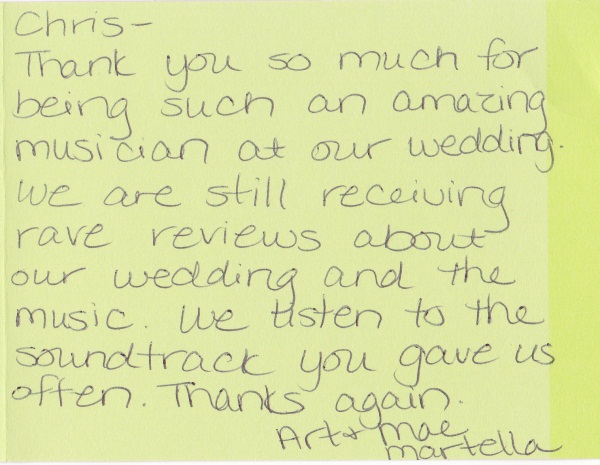 Chris-
Thank you so much for
being such an amazing
musician at our wedding.
We are still receiving
rave reviews about
our wedding and the
music. We listen to the
soundtrack you gave us
often. Thanks again.
Art + Mae
Martella